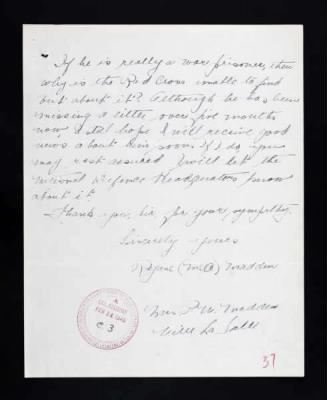 If he is really a war prisoner, then
why is the Red Cross unable to find
out about it? Although he has been
missing a little over five months
now I still hope I will receive good
news about him soon. If I do you
may rest assured I will let the
National Defence Headquarters know
about it.
Thank you, sir, for your sympathy.
Sincerely yours
(M.O) Madden
Mrs P. M. Madden
Ville La Salle
C 3
37